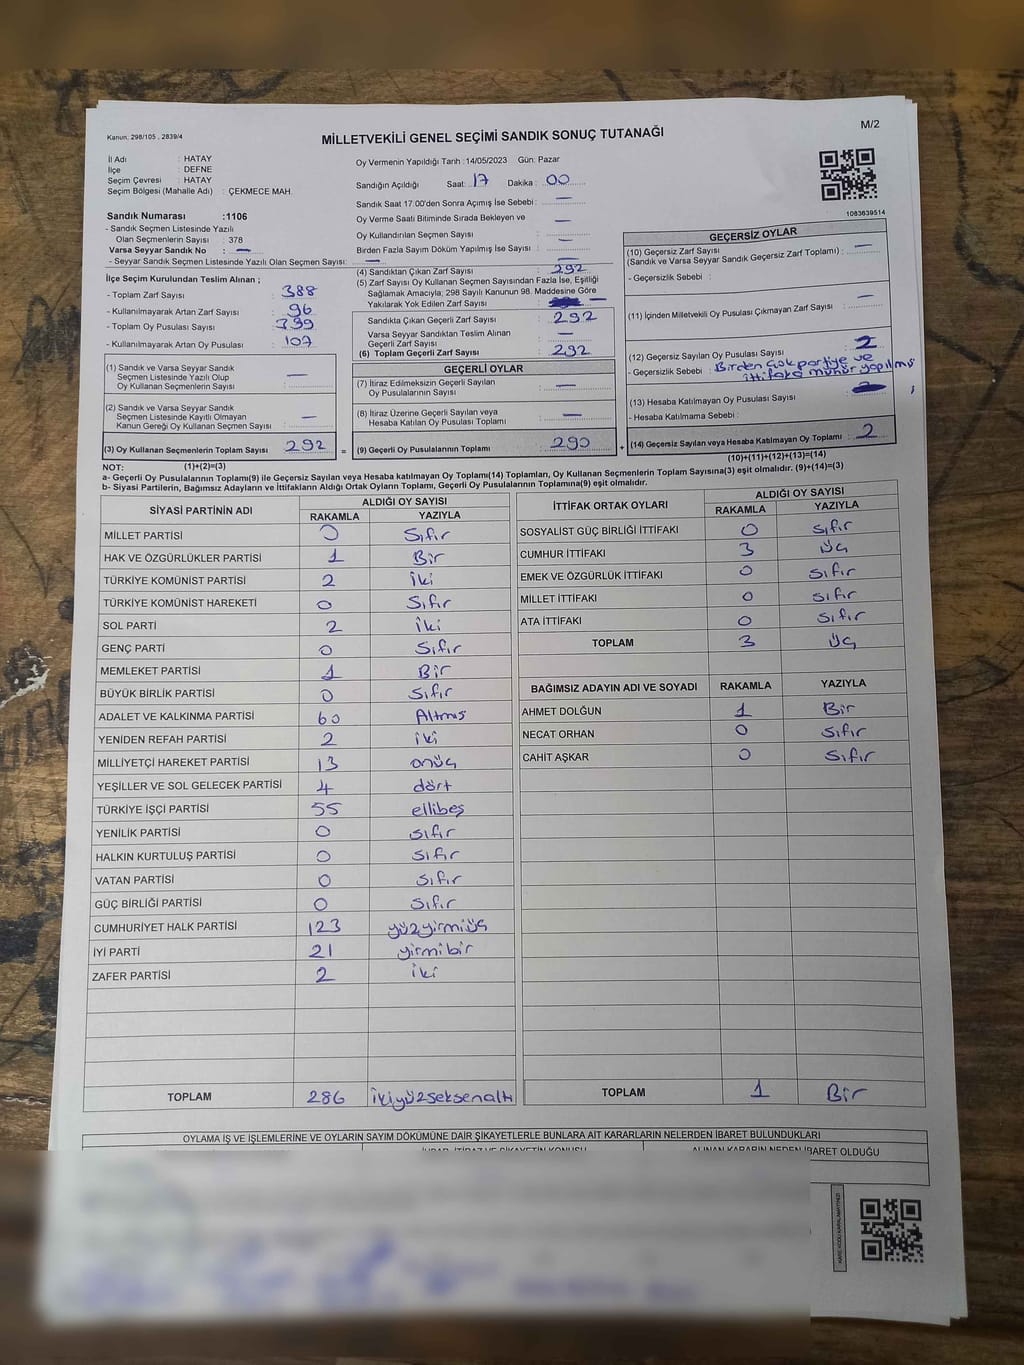 Kanun, 298/105 , 2839/4
MİLLETVEKİLİ GENEL SEÇİMİ SANDIK SONUÇ TUTANAĞI
M/2
İl Adı : HATAY
İlçe : DEFNE
Seçim Çevresi : HATAY
Seçim Bölgesi (Mahalle Adı) : ÇEKMECE MAH.
Oy Vermenin Yapıldığı Tarih :14/05/2023 Gün: Pazar
Sandığın Açıldığı Saat: 17 Dakika : 00
Sandık Saat 17:00'den Sonra Açmış İse Sebebi : —
Oy Verme Saati Bitiminde Sırada Bekleyen ve
Oy Kullandırılan Seçmen Sayısı : —
Birden Fazla Sayım Döküm Yapılmış İse Sayısı : —
1083639514
Sandık Numarası :1106
- Sandık Seçmen Listesinde Yazılı
Olan Seçmenlerin Sayısı : 378
Varsa Seyyar Sandık No : —
- Seyyar Sandık Seçmen Listesinde Yazılı Olan Seçmen Sayısı: —
İlçe Seçim Kurulundan Teslim Alınan ;
- Toplam Zarf Sayısı : 388
- Kullanılmayarak Artan Zarf Sayısı : 96
- Toplam Oy Pusulası Sayısı : 399
- Kullanılmayarak Artan Oy Pusulası : 107
(1) Sandık ve Varsa Seyyar Sandık
Seçmen Listesinde Yazılı Olup
Oy Kullanan Seçmenlerin Sayısı : —
(2) Sandık ve Varsa Seyyar Sandık
Seçmen Listesinde Kayıtlı Olmayan
Kanun Gereği Oy Kullanan Seçmen Sayısı : —
(3) Oy Kullanan Seçmenlerin Toplam Sayısı : 292 =
(4) Sandıktan Çıkan Zarf Sayısı : 292
(5) Zarf Sayısı Oy Kullanan Seçmen Sayısından Fazla İse, Eşitliği
Sağlamak Amacıyla; 298 Sayılı Kanunun 98. Maddesine Göre
Yakılarak Yok Edilen Zarf Sayısı : —
Sandıkta Çıkan Geçerli Zarf Sayısı : 292
Varsa Seyyar Sandıktan Teslim Alınan
Geçerli Zarf Sayısı : —
(6) Toplam Geçerli Zarf Sayısı : 292
GEÇERLİ OYLAR
(7) İtiraz Edilmeksizin Geçerli Sayılan
Oy Pusulalarının Sayısı : —
(8) İtiraz Üzerine Geçerli Sayılan veya
Hesaba Katılan Oy Pusulası Toplamı : —
(9) Geçerli Oy Pusulalarının Toplamı : 290 +
GEÇERSİZ OYLAR
(10) Geçersiz Zarf Sayısı : —
(Sandık ve Varsa Seyyar Sandık Geçersiz Zarf Toplamı)
- Geçersizlik Sebebi :
(11) İçinden Milletvekili Oy Pusulası Çıkmayan Zarf Sayısı : —
(12) Geçersiz Sayılan Oy Pusulası Sayısı : 2
- Geçersizlik Sebebi : Birden çok partiye ve
ittifaka mühür yapılmış
(13) Hesaba Katılmayan Oy Pusulası Sayısı :
- Hesaba Katılmama Sebebi :
(14) Geçersiz Sayılan veya Hesaba Katılmayan Oy Toplamı : 2
NOT: (1)+(2)=(3)
(10)+(11)+(12)+(13)=(14)
a- Geçerli Oy Pusulalarının Toplamı(9) ile Geçersiz Sayılan veya Hesaba katılmayan Oy Toplamı(14) Toplamları, Oy Kullanan Seçmenlerin Toplam Sayısına(3) eşit olmalıdır. (9)+(14)=(3)
b- Siyasi Partilerin, Bağımsız Adayların ve İttifakların Aldığı Ortak Oyların Toplamı, Geçerli Oy Pusulalarının Toplamına(9) eşit olmalıdır.
SİYASİ PARTİNİN ADI ALDIĞI OY SAYISI
RAKAMLA YAZIYLA
MİLLET PARTİSİ 0 Sıfır
HAK VE ÖZGÜRLÜKLER PARTİSİ 1 Bir
TÜRKİYE KOMÜNİST PARTİSİ 2 iki
TÜRKİYE KOMÜNİST HAREKETİ 0 Sıfır
SOL PARTİ 2 iki
GENÇ PARTİ 0 Sıfır
MEMLEKET PARTİSİ 1 Bir
BÜYÜK BİRLİK PARTİSİ 0 Sıfır
ADALET VE KALKINMA PARTİSİ 60 Altmış
YENİDEN REFAH PARTİSİ 2 iki
MİLLİYETÇİ HAREKET PARTİSİ 13 onüç
YEŞİLLER VE SOL GELECEK PARTİSİ 4 dört
TÜRKİYE İŞÇİ PARTİSİ 55 ellibeş
YENİLİK PARTİSİ 0 sıfır
HALKIN KURTULUŞ PARTİSİ 0 sıfır
VATAN PARTİSİ 0 sıfır
GÜÇ BİRLİĞİ PARTİSİ 0 sıfır
CUMHURİYET HALK PARTİSİ 123 yüzyirmiüç
İYİ PARTİ 21 yirmibir
ZAFER PARTİSİ 2 iki
TOPLAM 286 ikiyüzseksenaltı
İTTİFAK ORTAK OYLARI ALDIĞI OY SAYISI
RAKAMLA YAZIYLA
SOSYALİST GÜÇ BİRLİĞİ İTTİFAKI 0 sıfır
CUMHUR İTTİFAKI 3 üç
EMEK VE ÖZGÜRLÜK İTTİFAKI 0 sıfır
MİLLET İTTİFAKI 0 sıfır
ATA İTTİFAKI 0 sıfır
TOPLAM 3 üç
BAĞIMSIZ ADAYIN ADI VE SOYADI RAKAMLA YAZIYLA
AHMET DOLĞUN 1 Bir
NECAT ORHAN 0 sıfır
CAHİT AŞKAR 0 sıfır
TOPLAM 1 Bir
OYLAMA İŞ VE İŞLEMLERİNE VE OYLARIN SAYIM DÖKÜMÜNE DAİR ŞİKAYETLERLE BUNLARA AİT KARARLARIN NELERDEN İBARET BULUNDUKLARI
ALINAN KARARIN NEDEN İBARET OLDUĞU